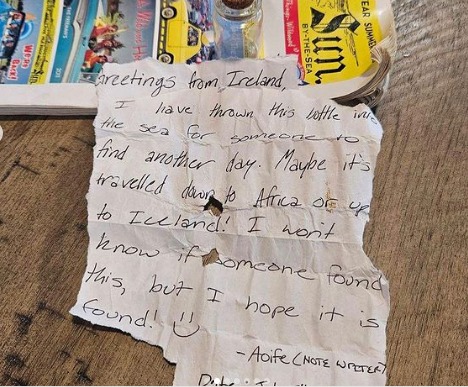 Greetings from Ireland,
I have thrown this bottle into
the sea for someone to
find another day. Maybe it's
travelled down to Africa or up
to Iceland! I won't
know if someone found
this, but I hope it is
found! :)
- Aoife (NOTE WRITER)
Sun.
BY-THE-SEA